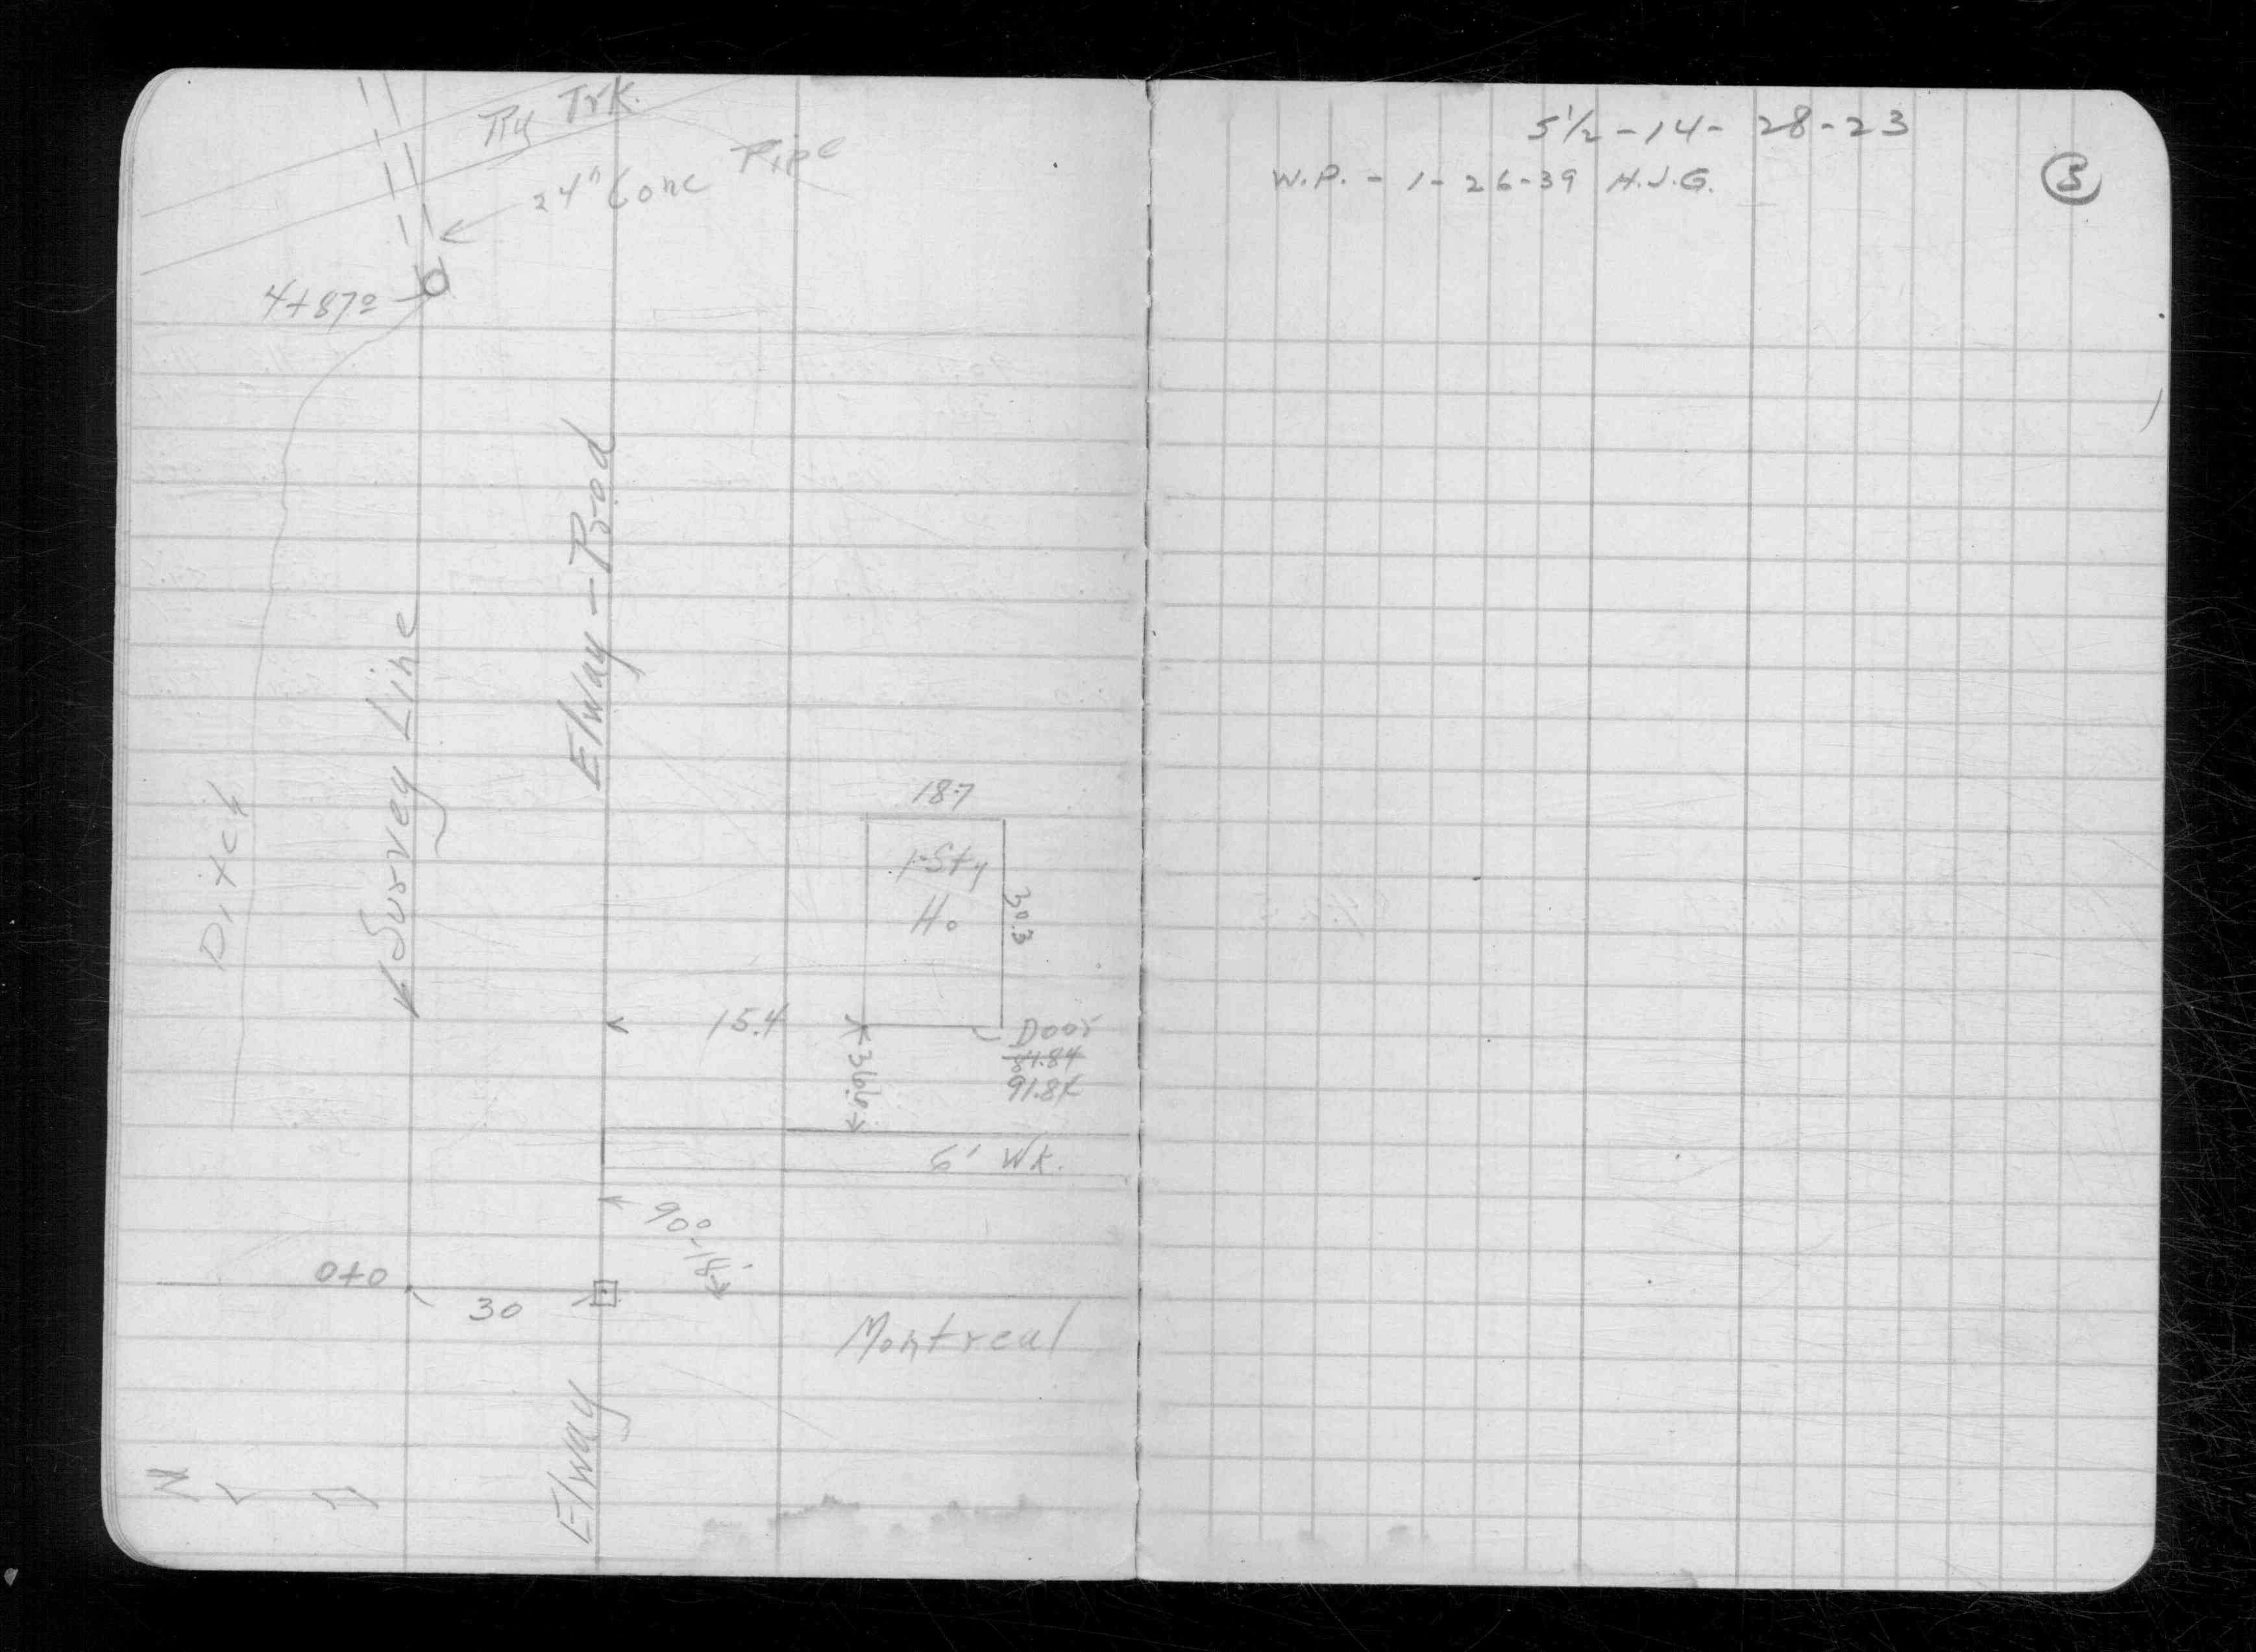 Ry Trk.
24" Conc Pipe
4+87º
Elway - Prod
Survey Line
Ditch
18.7
1-Sty
Ho
30.3
15.4
Door
84.84
91.84
6' Wk.
90º
0+0
30
Montreal
Elway
N
5½-14-28-23
W.P. - 1-26-39 H.J.G.
3